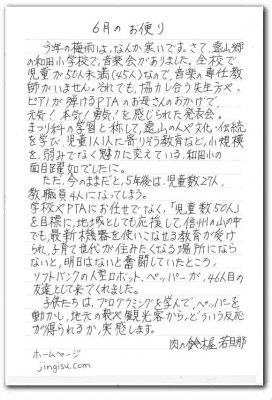 6月のお便り
今年の梅雨は、なんか寒いです。さて、遠山郷
の和田小学校で、音楽会がありました。全校で
児童が50人未満(45人)なので、音楽の専任教
師がいません。それでも、協力し合う先生方や、
ピアノが弾けるPTAのお母さんのおかげで
元気!本気!勇気!を感じられた発表会。
まつり科の学習と称して、遠山の人や文化・伝統
を学び、児童1人1人に寄りそう教育など、小規模
を、弱みでなく魅力に変えている、和田小の
面目躍如でした。
ただ、今のままだと、5年後は、児童数27人、
教職員4人になってしまう。
学校やPTAにお任せでなく、「児童数50人」
を目標に、地域としても応援して、信州の山の中
でも最新機器を使いこなせる教育が受け
られ、子育て世代が住みたくなる場所になら
ないと、明日はないと奮闘していたところ、
ソフトバンクの人型ロボット、ペッパーが、46人目の
友達として来てくれました。
子供たちは、プログラミングを学んで、ペッパーを
動かし、地元の方や観光客から、どういう反応
が得られるか、実感します。
肉の鈴木屋 若旦那
ホームページ
jingisu.com